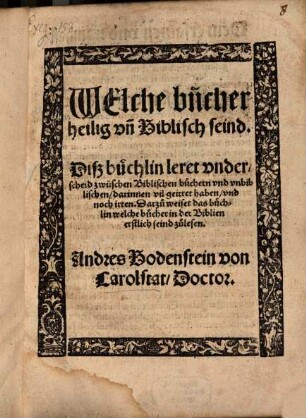 WElche bücher
heilig vñ Biblisch seind.
Diß büchlin leret vnder⸗
scheid zwüschen Biblischen büchern vnd vnbib
lischen / darinnen vil geirret haben / vnd
noch irren. Darzů weiset das büch⸗
lin welche bücher in der Biblien
erstlich seind zůlesen.
Andres Bodenstein von
Carolstat / Doctor.